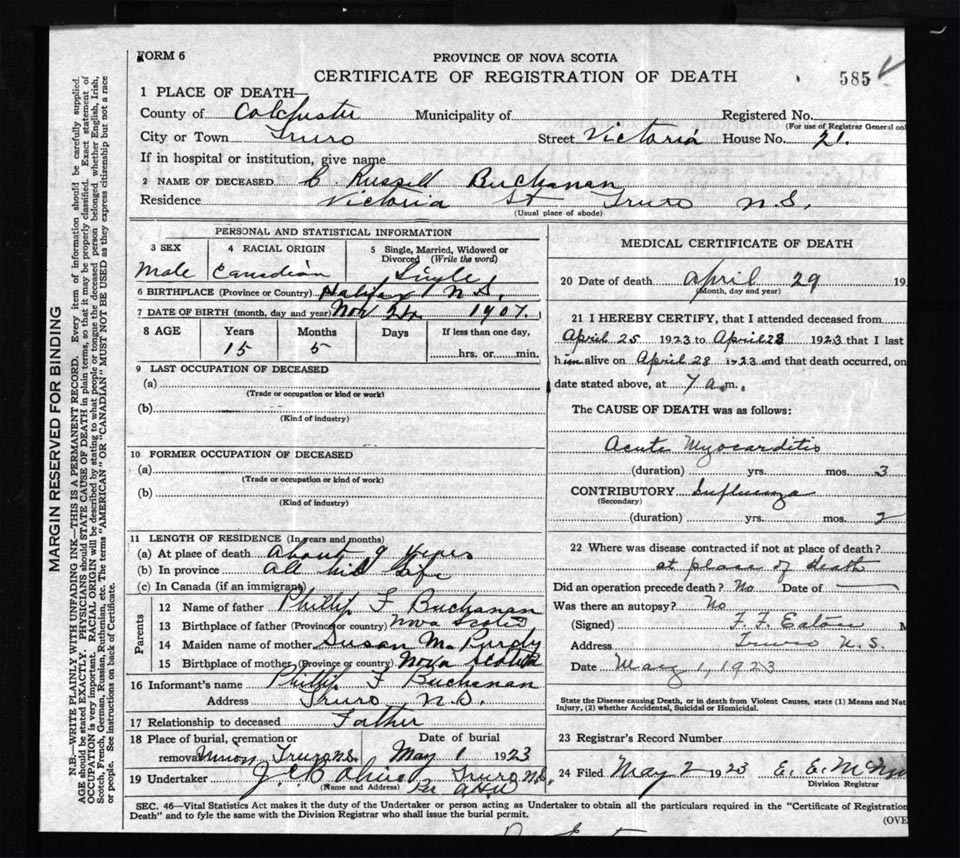 FORM 6
PROVINCE OF NOVA SCOTIA
CERTIFICATE OF REGISTRATION OF DEATH
585
1 PLACE OF DEATH—
County of Colchester Municipality of Registered No.
(For use of Registrar General onl
City or Town Truro Street Victoria House No. 21.
If in hospital or institution, give name
2 NAME OF DECEASED C. Russell Buchanan
Residence Victoria St Truro N.S.
(Usual place of abode)
PERSONAL AND STATISTICAL INFORMATION
3 SEX 4 RACIAL ORIGIN 5 Single, Married, Widowed or Divorced (Write the word)
Male Canadian Single
6 BIRTHPLACE (Province or Country) Halifax N.S.
7 DATE OF BIRTH (month, day and year) Nov 1907.
8 AGE Years Months Days If less than one day,
15 5 hrs. or min.
9 LAST OCCUPATION OF DECEASED
(a)
(Trade or occupation or kind or work)
(b)
(Kind of industry)
10 FORMER OCCUPATION OF DECEASED
(a)
(Trade or occupation or kind of work)
(b)
(Kind of industry)
11 LENGTH OF RESIDENCE (In years and months)
(a) At place of death About 9 years
(b) In province All his life
(c) In Canada (if an immigrant)
Parents
12 Name of father Phillip F Buchanan
13 Birthplace of father (Province or country) Nova Scotia
14 Maiden name of mother Susan M. Purdy
15 Birthplace of mother (Province or country) Nova Scotia
16 Informant's name Phillip F Buchanan
Address Truro N.S.
17 Relationship to deceased Father
18 Place of burial, cremation or removal Truro N.S. Date of burial May 1 1923
19 Undertaker Truro N.S.
(Name and Address) Per
MEDICAL CERTIFICATE OF DEATH
20 Date of death April 29 19
(Month, day and year)
21 I HEREBY CERTIFY, that I attended deceased from
April 25 1923 to April 28 1923 that I last
him alive on April 28 1923 and that death occurred, on
date stated above, at 7 a.m.
The CAUSE OF DEATH was as follows:
Acute Myocarditis
(duration) yrs. mos. 3
CONTRIBUTORY Influenza
(Secondary)
(duration) yrs. mos. 2
22 Where was disease contracted if not at place of death?
at place of death
Did an operation precede death? No Date of
Was there an autopsy? No
(Signed) F. F. Eaton M
Address Truro N.S.
Date May 1, 1923
State the Disease causing Death, or in death from Violent Causes, state (1) Means and Nat
Injury, (2) whether Accidental, Suicidal or Homicidal.
23 Registrar's Record Number
24 Filed May 2 1923 E. E.
Division Registrar
SEC. 46—Vital Statistics Act makes it the duty of the Undertaker or person acting as Undertaker to obtain all the particulars required in the "Certificate of Registration
Death" and to fyle the same with the Division Registrar who shall issue the burial permit.
(OVE
MARGIN RESERVED FOR BINDING
N.B.—WRITE PLAINLY WITH UNFADING INK—THIS IS A PERMANENT RECORD. Every item of information should be carefully supplied.
AGE should be stated EXACTLY. PHYSICIANS should STATE CAUSE OF DEATH in plain terms, so that it may be properly classified. Exact statement of
OCCUPATION is very important. RACIAL ORIGIN will be described by stating to what people or tongue the deceased person belonged, whether English, Irish,
Scotch, French, German, Russian, Ruthenian, etc. The terms "AMERICAN" OR "CANADIAN" MUST NOT BE USED as they express citizenship but not a race
or people. See instructions on back of Certificate.